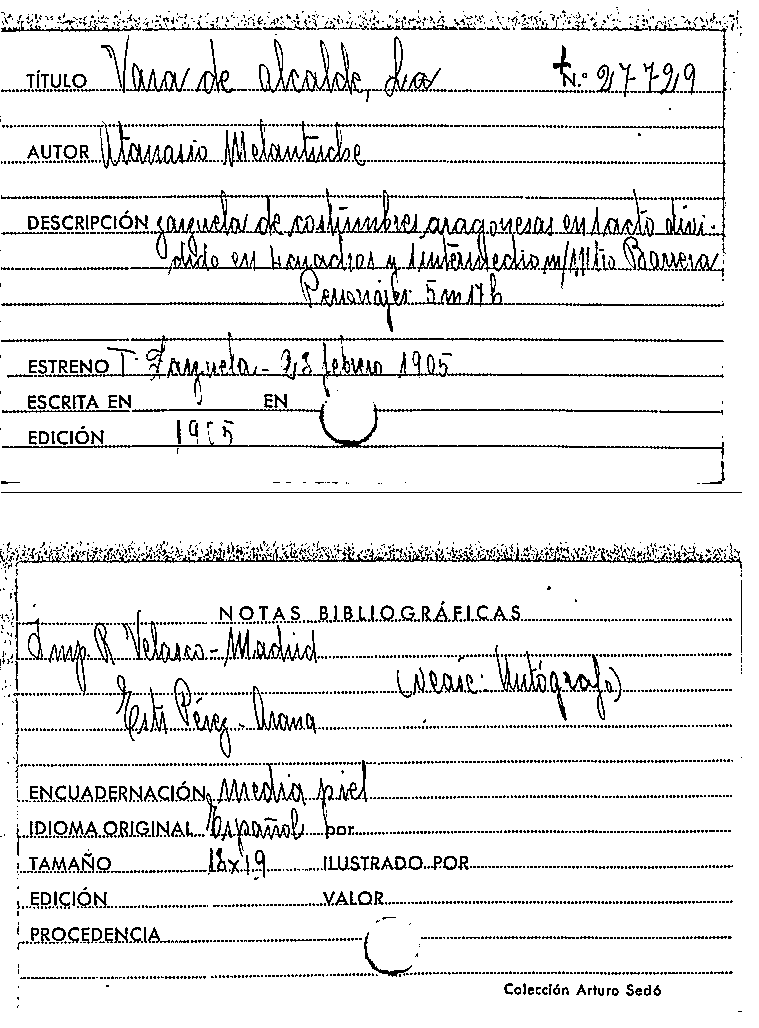 TÍTULO Vara de alcalde, La N.º 27729
AUTOR Atanasio Melantuche
DESCRIPCIÓN zarzuela de costumbres aragonesas en 1 acto divi-
dido en 4 cuadros y 1 intermedio m/ Mtro Barrera
Personajes 5 m 17 h
ESTRENO T. Zarzuela - 28 febrero 1905
ESCRITA EN EN
EDICIÓN 1905
NOTAS BIBLIOGRÁFICAS
Imp. R Velasco - Madrid
(véase: Autógrafo)
Pérez - Arana
ENCUADERNACIÓN media piel
IDIOMA ORIGINAL Español por
TAMAÑO 13x19 ILUSTRADO POR
EDICIÓN VALOR
PROCEDENCIA
Colección Arturo Sedó